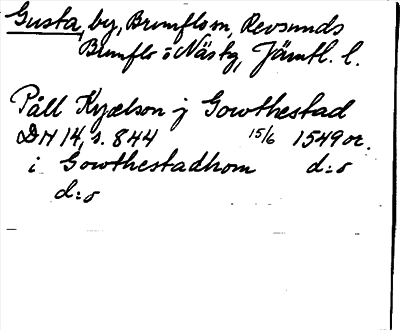 Gusta, by, Brunflo sn, Revsunds
Brunflo o Näs tg, Jämtl. l.
Påll Kyælson j Gowthestad
DN 14, s. 844 15/6 1549 or.
i Gowthestadhom d:o
d:o